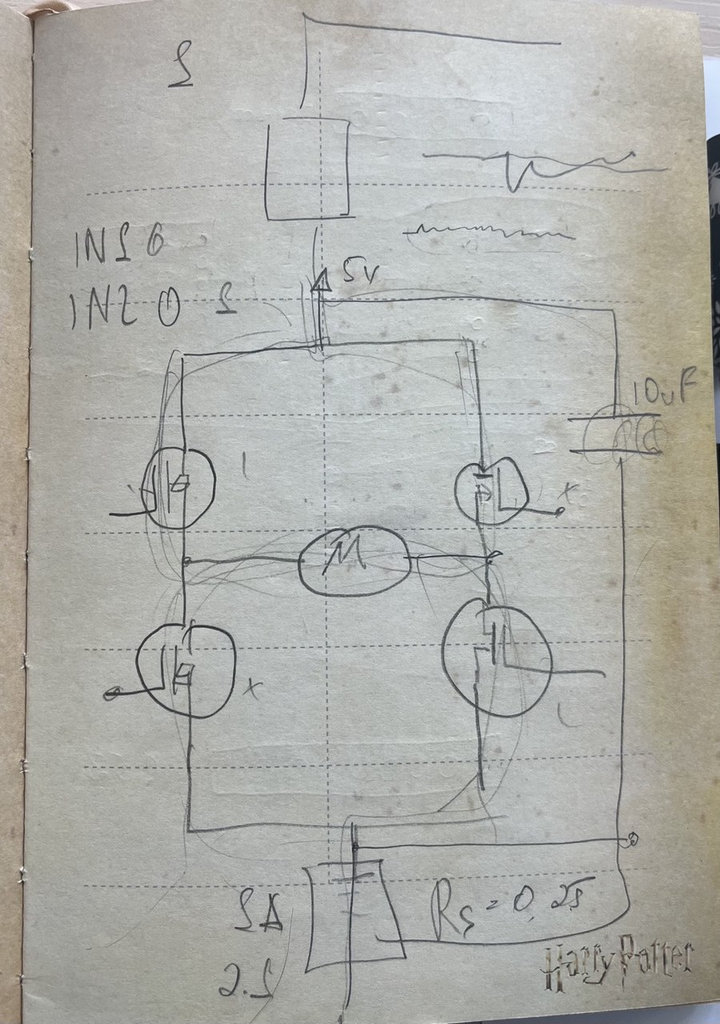 1
IN1 0
IN2 0 1
5V
10uF
M
1A
Rs = 0,25
2.1
Harry Potter